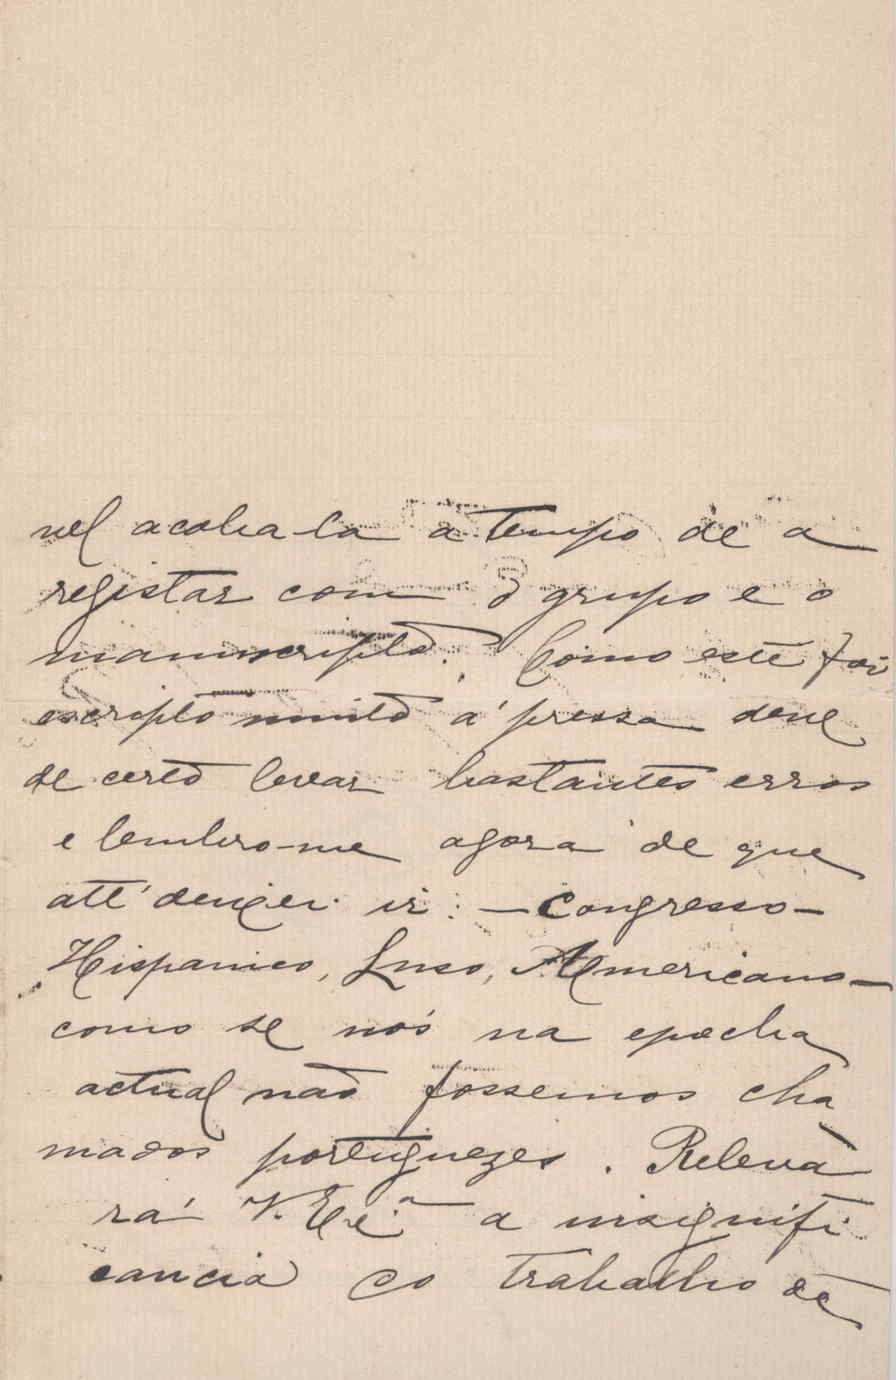 nel acaba-la a tempo de a
registar com o grupo e o
manuscripto. Como este foi
escripto muito á pressa deve
de certo levar bastantes erros
e lembro-me agora de que
até deixei ir: — Congresso —
Hispanico, Luso, Americano —
como se nós na epocha
actual não fossemos cha
mados portuguezes. Releva
rá V. Exª a insignifi
cancia e o trabalho de